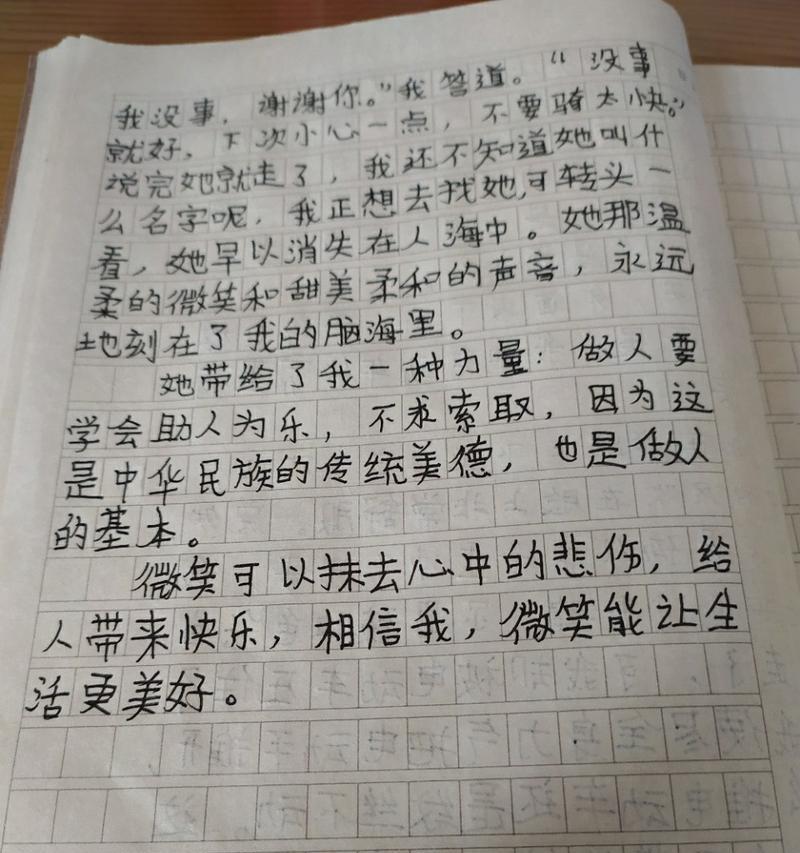 我没事，谢谢你。”我答道。“没事
就好，下次小心一点，不要骑太快。”
说完她就走了，我还不知道她叫什
么名字呢，我正想去找她,可转头一
看，她早以消失在人海中。她那温
柔的微笑和甜美柔和的声音，永远
地刻在了我的脑海里。
她带给了我一种力量：做人要
学会助人为乐，不求索取，因为这
是中华民族的传统美德，也是做人
的基本。
微笑可以抹去心中的悲伤，给
人带来快乐，相信我，微笑能让生
活更美好。